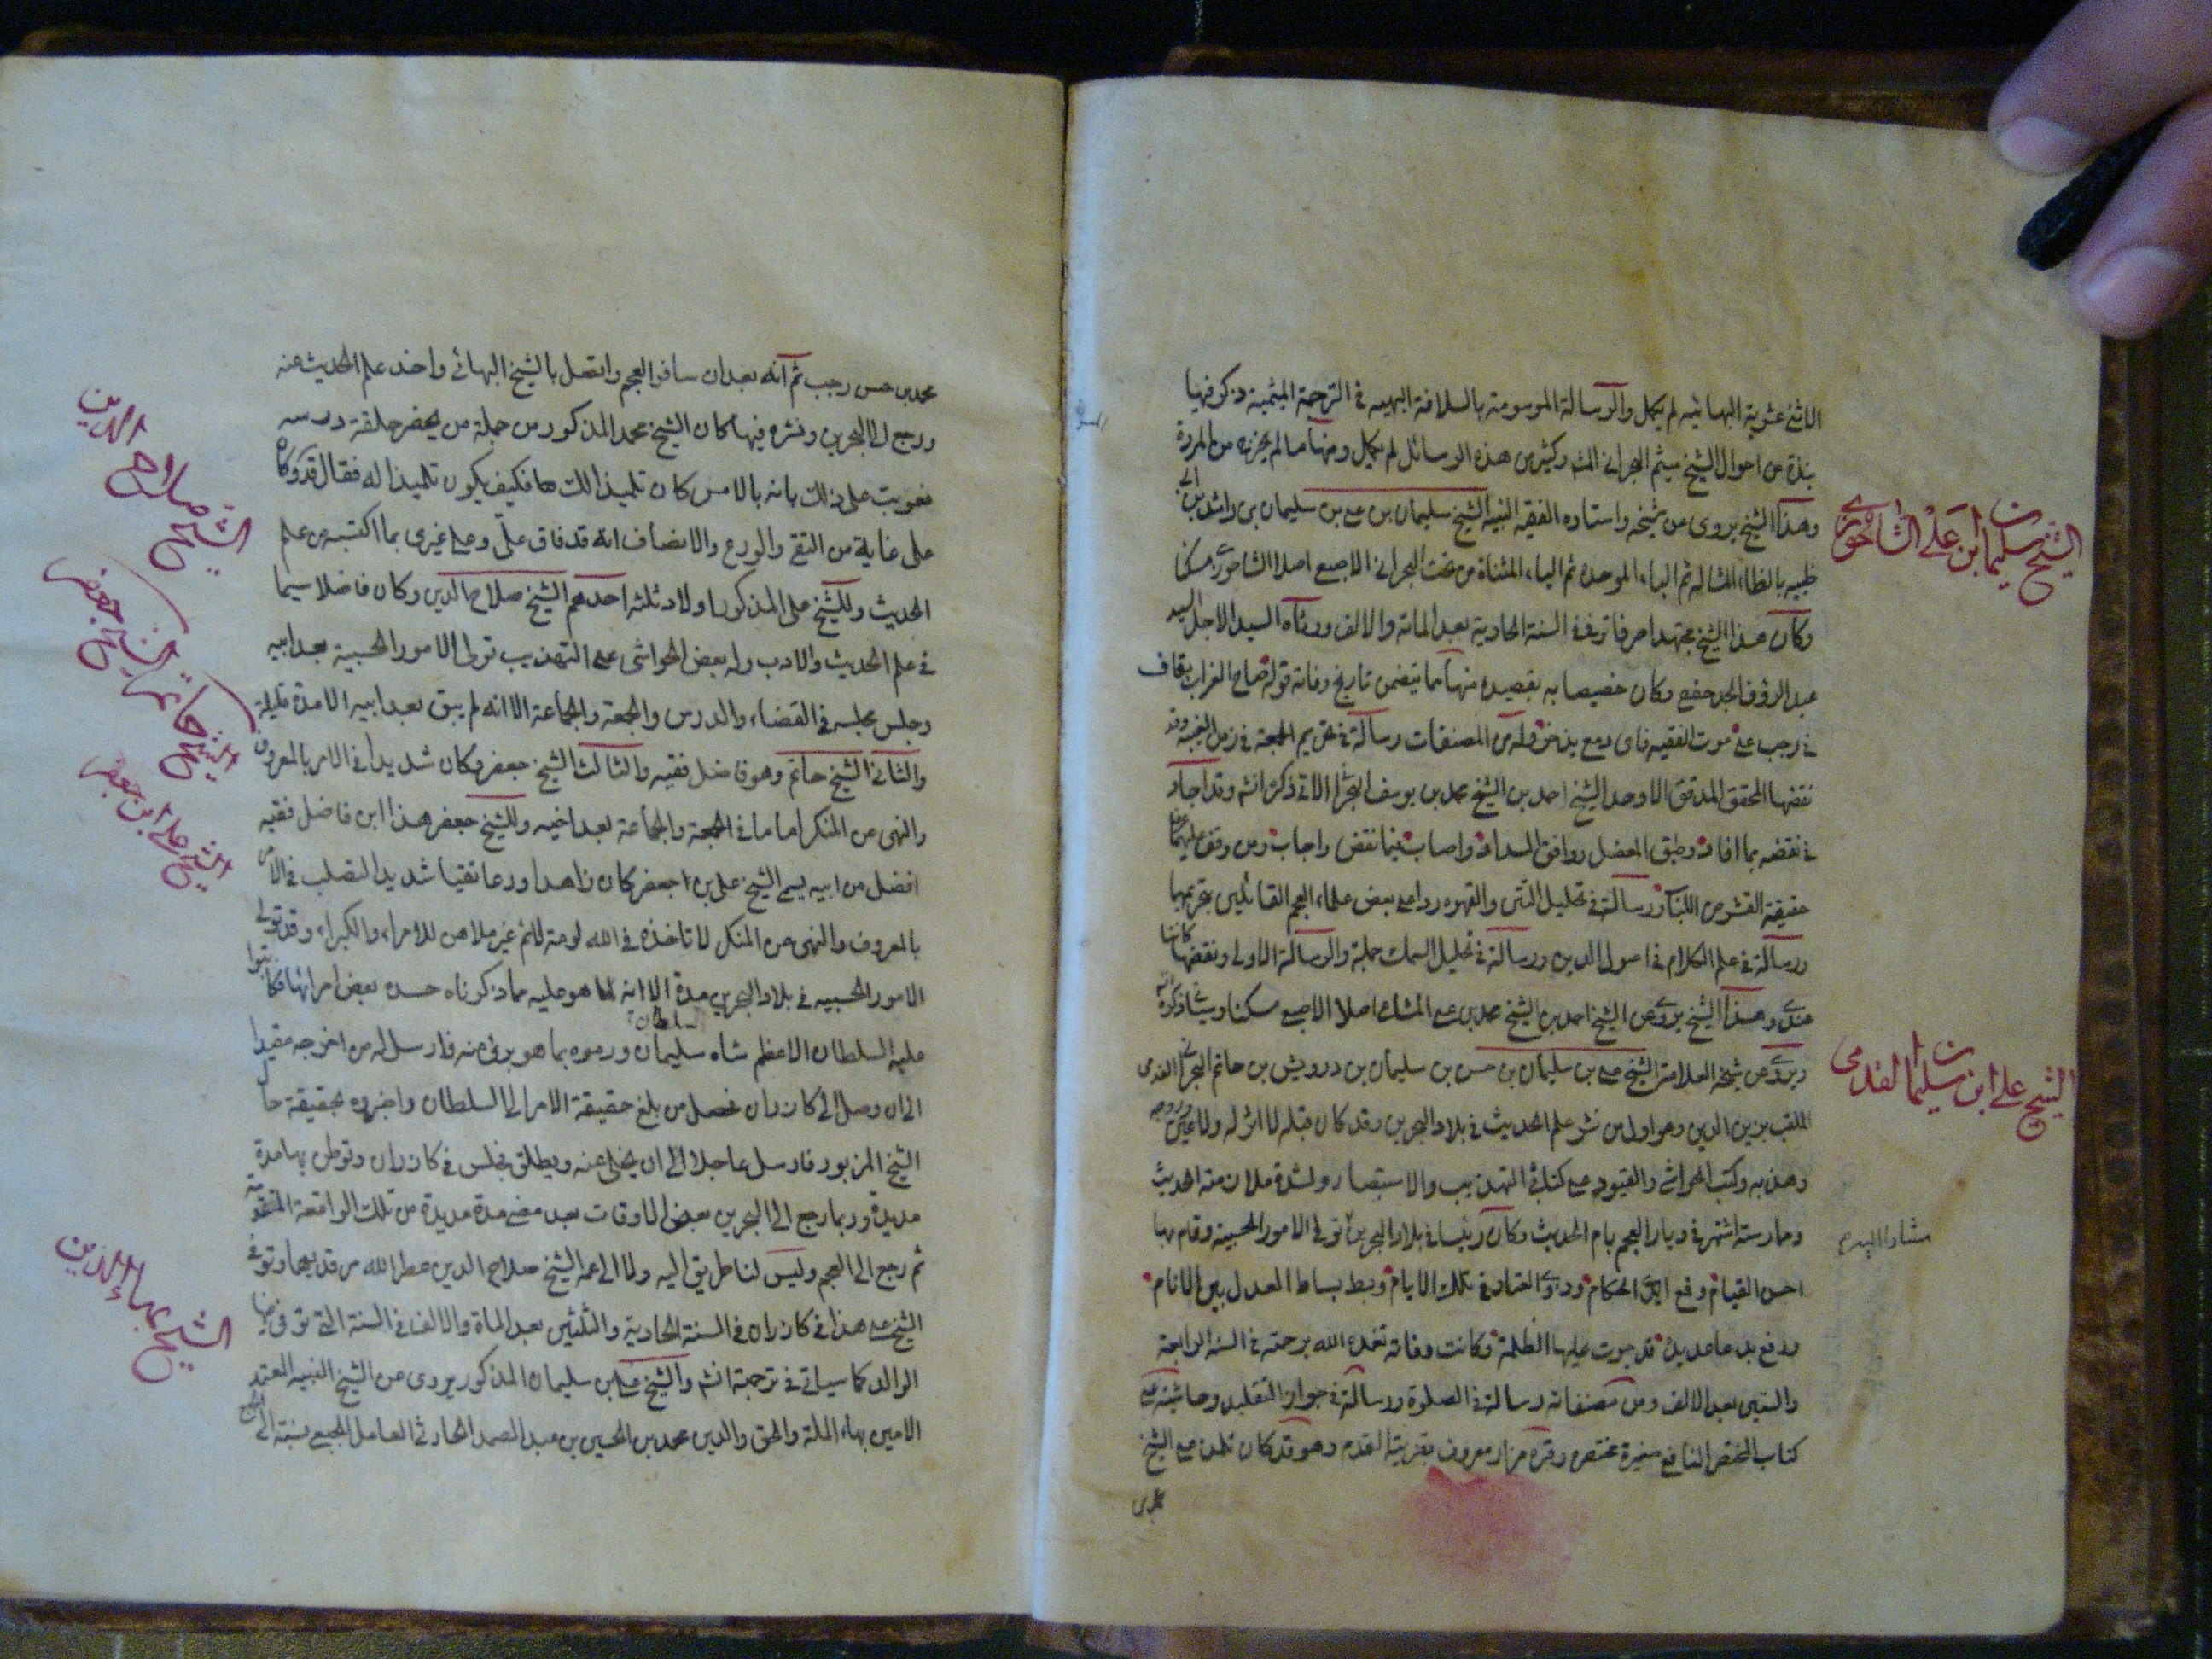 الاثنى عشرية البهائيه لم يكمل والرسالة الموسومة بالسلافة البهيه فى الترجمة الميثمية ذكر فيها
نبذة من احوال الشيخ ميثم البحرانى وكثير من هذه الرسائل لم يكمل ومنها ما لم يخرج من المسودة
وهذا الشيخ يروى عن شيخه واستاده الفقيه النبيه الشيخ سليمان بن على بن سليمان بن راشد بن ابى
ظبيه بالظاء المشاله ثم الباء الموحده ثم الياء المثناة من تحت البحرانى الاصبعى اصلا الشاخورى مسكنا
وكان هذا الشيخ مجتهدا صرفا توفى فى السنة الحادية بعد المائة والالف ورثاه السيد الاجل السيد
عبد الرؤف الجد حفصى وكان خصيصا به بقصيده منها مما يتضمن تاريخ وفاته قوله صاح الغراب بقاف
فى رجب على موت الفقيه فاى دمع يذخر وله من المصنفات رسالة فى تحريم الجمعة فى زمن الغيبة وقد
نقضها المحقق المدقق الاوحد الشيخ احمد بن الشيخ محمد بن يوسف البحرانى الاتى ذكره انشه وقد اجاد
فى نقضه بما افاد وطبق المفصل ووافق السداد واصاب فيما نقض واجاب ومن وقف عليهما علم
حقيقة القشر من اللباب ورسالة فى تحليل التتن والقهوه ردا على بعض علماء العجم القائلين بتحريمها
ورسالة فى علم الكلام فى اصول الدين ورسالة فى تحليل السمك جملة والرسالة الاولى ونقضها كانتا
عندى وهذا الشيخ يروى عن الشيخ احمد بن الشيخ محمد بن على اصلا الاصبعى مسكنا وسيأتى ذكره انشه
ويروى عن شيخه العلامة الشيخ على بن سليمان بن حسن بن سليمان بن درويش بن حاتم البحرانى القدمى
الملقب بزين الدين وهو اول من نشر علم الحديث فى بلاد البحرين وقد كان قبله لا اثر له ولا عين وروجه
وهذبه وكتب الحواشى والقيود على كتابى التهذيب والاستبصار ولشدة ملازمته الحديث
وممارسته اشتهر فى ديار العجم بام الحديث وكان رئيسا فى بلاد البحرين تولى الامور الحسبية وقام بها
احسن القيام وقمع ايدى الحكام وذوى الفساد فى تلك الايام وبسط بساط العدل بين الانام
ودفع بدعا عديدة قد جرت عليها الظلمة وكانت وفاته تغمده الله برحمته فى السنه الرابعة
والستين بعد الالف ومن مصنفاته رسالة فى الصلوة ورسالة فى جواز التقليد وحاشية على
كتاب المختصر النافع صغيرة مختصره وقبره مزار معروف بقرية القدم وهو قد كان تلمذ على الشيخ
محمد بن
الشيخ سليمان ابن على الشاخورى
الشيخ على ابن سليمان القدمى
محمد بن حسن رجب ثم انه بعد ان سافر العجم واتصل بالشيخ البهائى واخذ علم الحديث عنه
ورجع الى البحرين ونشره فيها كان الشيخ محمد المذكور من جملة من يحضر حلقة درسه
فعوتب على ذلك بانه بالامس كان تلميذا لك فكيف تكون تلميذا له فقال قده وكان
على غاية من التقى والورع والانصاف انه قد فاق علىّ وعلى غيرى بما اكتسبه من علم
الحديث وللشيخ على المذكور اولاد ثلثه احدهم الشيخ صلاح الدين وكان فاضلا سيما
فى علم الحديث والادب وله بعض الحواشى على التهذيب تولى الامور الحسبية بعد ابيه
وجلس مجلسه فى القضاء والدرس والجمعة والجماعة الا انه لم يبق بعد ابيه الا مدة قليلة
والثانى الشيخ حاتم وهو فاضل فقيه والثالث الشيخ جعفر وكان شديدا فى الامر بالمعروف
والنهى عن المنكر اماما فى الجمعة والجماعة بعد اخيه وللشيخ جعفر هذا ابن فاضل فقيه
افضل من ابيه يسمى الشيخ على بن جعفر كان زاهدا ورعا تقيا شديد التصلب فى الامر
بالمعروف والنهى عن المنكر لا تاخذه فى الله لومة لائم غير ملاهن للامراء والكبراء وقد تولى
الامور الحسبيه فى بلاد البحرين مدة الا انه لما هو عليه مما ذكرناه حسده بعض امرائها فكاتبوا
سلطان
عليه السلطان الاعظم شاه سليمان ورموه بما هو برئ منه فارسل له من اخرجه مقيدا
الى ان وصل الى كازران فحصل من بلغ حقيقة الامر الى السلطان واخبره بحقيقة حال
الشيخ المزبور فارسل عاجلا الى ان يخلى عنه ويطلق فجلس فى كازران وتوطن بها مدة
مديدة وربما رجع الى البحرين بعض الاوقات بعد مضى مدة مديدة من تلك الواقعة المتقدمة
ثم رجع الى العجم وليس لنا طريق اليه ولا الى عمه الشيخ صلاح الدين عطر الله مرقديهما وتوفى
الشيخ على هذا فى كازران فى السنة الحادية والثلثين بعد الماة والالف فى السنة التى توفى فيها
الوالد كما سياتى فى ترجمته انشه والشيخ على بن سليمان المذكور يروى عن الشيخ النبيه المعتمد
الامين بهاء الملة والحق والدين محمد بن الحسين بن عبد الصمد الحارثى العاملى الجبعى نسبة الى
الشيخ صلاح الدين
الشيخ حاتم الشيخ جعفر
الشيخ على ابن جعفر
الشيخ بهاء الدين